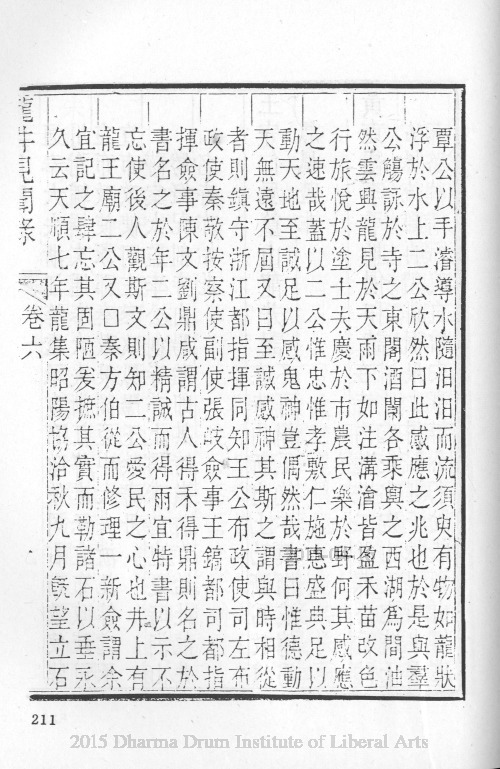 覃公以手濬導水隨汩汩而流須臾有物如龍狀
浮於水上二公欣然曰此感應之兆也於是與羣
公觴詠於寺之東閣酒闌各乘輿之西湖爲間泄
然雲興龍見於天雨下如注溝澮皆盈禾苗改色
行旅悅於塗士夫慶於市農民樂於野何其感應
之速哉蓋以二公惟忠惟孝敷仁施惠盛典足以
動天地至誠足以感鬼神豈偶然哉書曰惟德動
天無遠不屆又曰至諴感神其斯之謂與時相從
者則鎮守浙江都指揮同知王公布政使司左布
政使秦敬按察使副使張岐僉事王鎬都司都指
揮僉事陳文劉鼎咸謂古人得禾得鼎則名之於
書名之於年二公以精誠而得雨宜特書以示不
忘使後人觀斯文則知二公愛民之心也井上有
龍王廟二公又囗秦方伯從而修理一新僉謂余
宜記之肆忘其固陋爰摭其實而勒諸石以垂永
久云天順七年龍集昭陽協洽秋九月旣望立石
龍井見聞錄
卷六
211
2015 Dharma Drum Institute of Liberal Arts